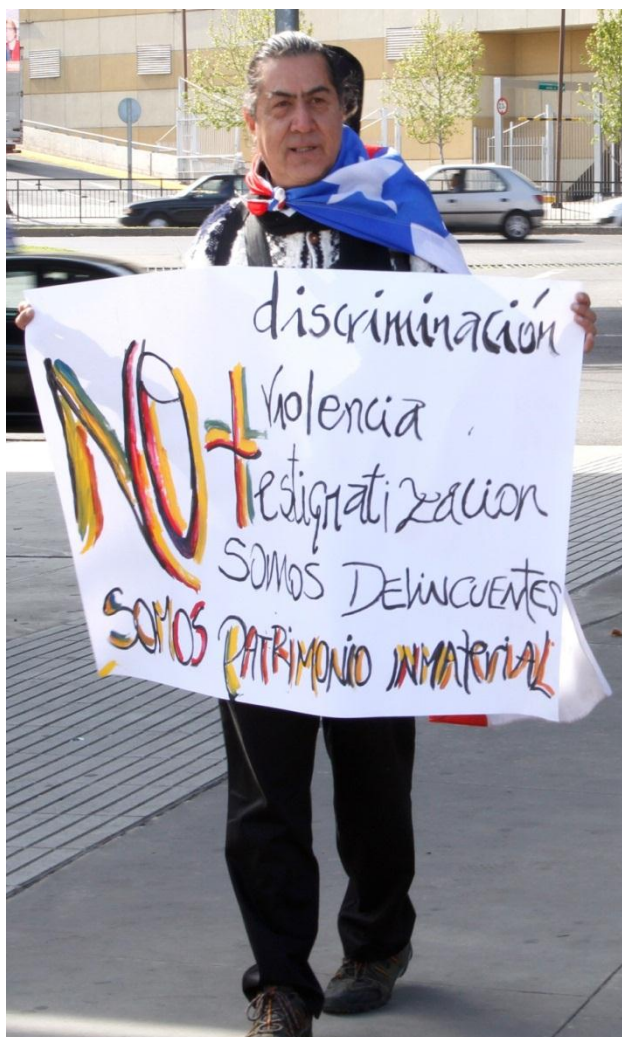 discriminación
NO + violencia
estigmatización
SOMOS DELINCUENTES
SOMOS PATRIMONIO INMATERIAL